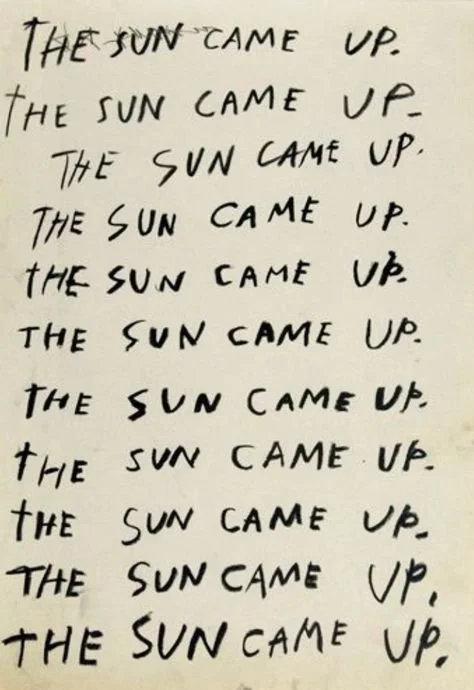 THE SUN CAME UP.
THE SUN CAME UP.
THE SUN CAME UP.
THE SUN CAME UP.
THE SUN CAME UP.
THE SUN CAME UP.
THE SUN CAME UP.
THE SUN CAME UP.
THE SUN CAME UP.
THE SUN CAME UP.
THE SUN CAME UP.